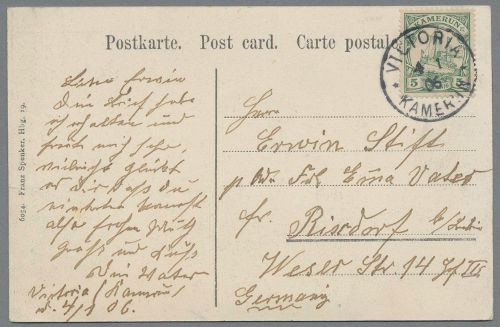 Postkarte. Post card. Carte postale
KAMERUN
5
VICTORIA
4 1
06
* KAMERUN *
6024. Franz Spenker, Hbg. 19.
Lieber Erwin
Dein Brief habe
ich erhalten und
freut mich sehr,
vielleicht glückt
es Dir daß Du
also frohen Muth
Gruß und Kuß
Dein Vater
Victoria/Kamerun
d. 4/1 06.
Herrn
Erwin Stift
p. Adr. Frl. Ema Vater
Rixdorf b/Berlin
Weser Str 14 Hf III
Germany